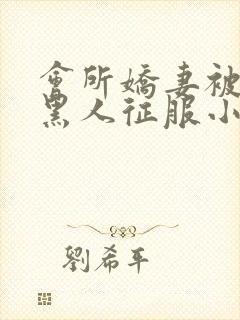 會所嬌妻被
黑人征服小
劉希平